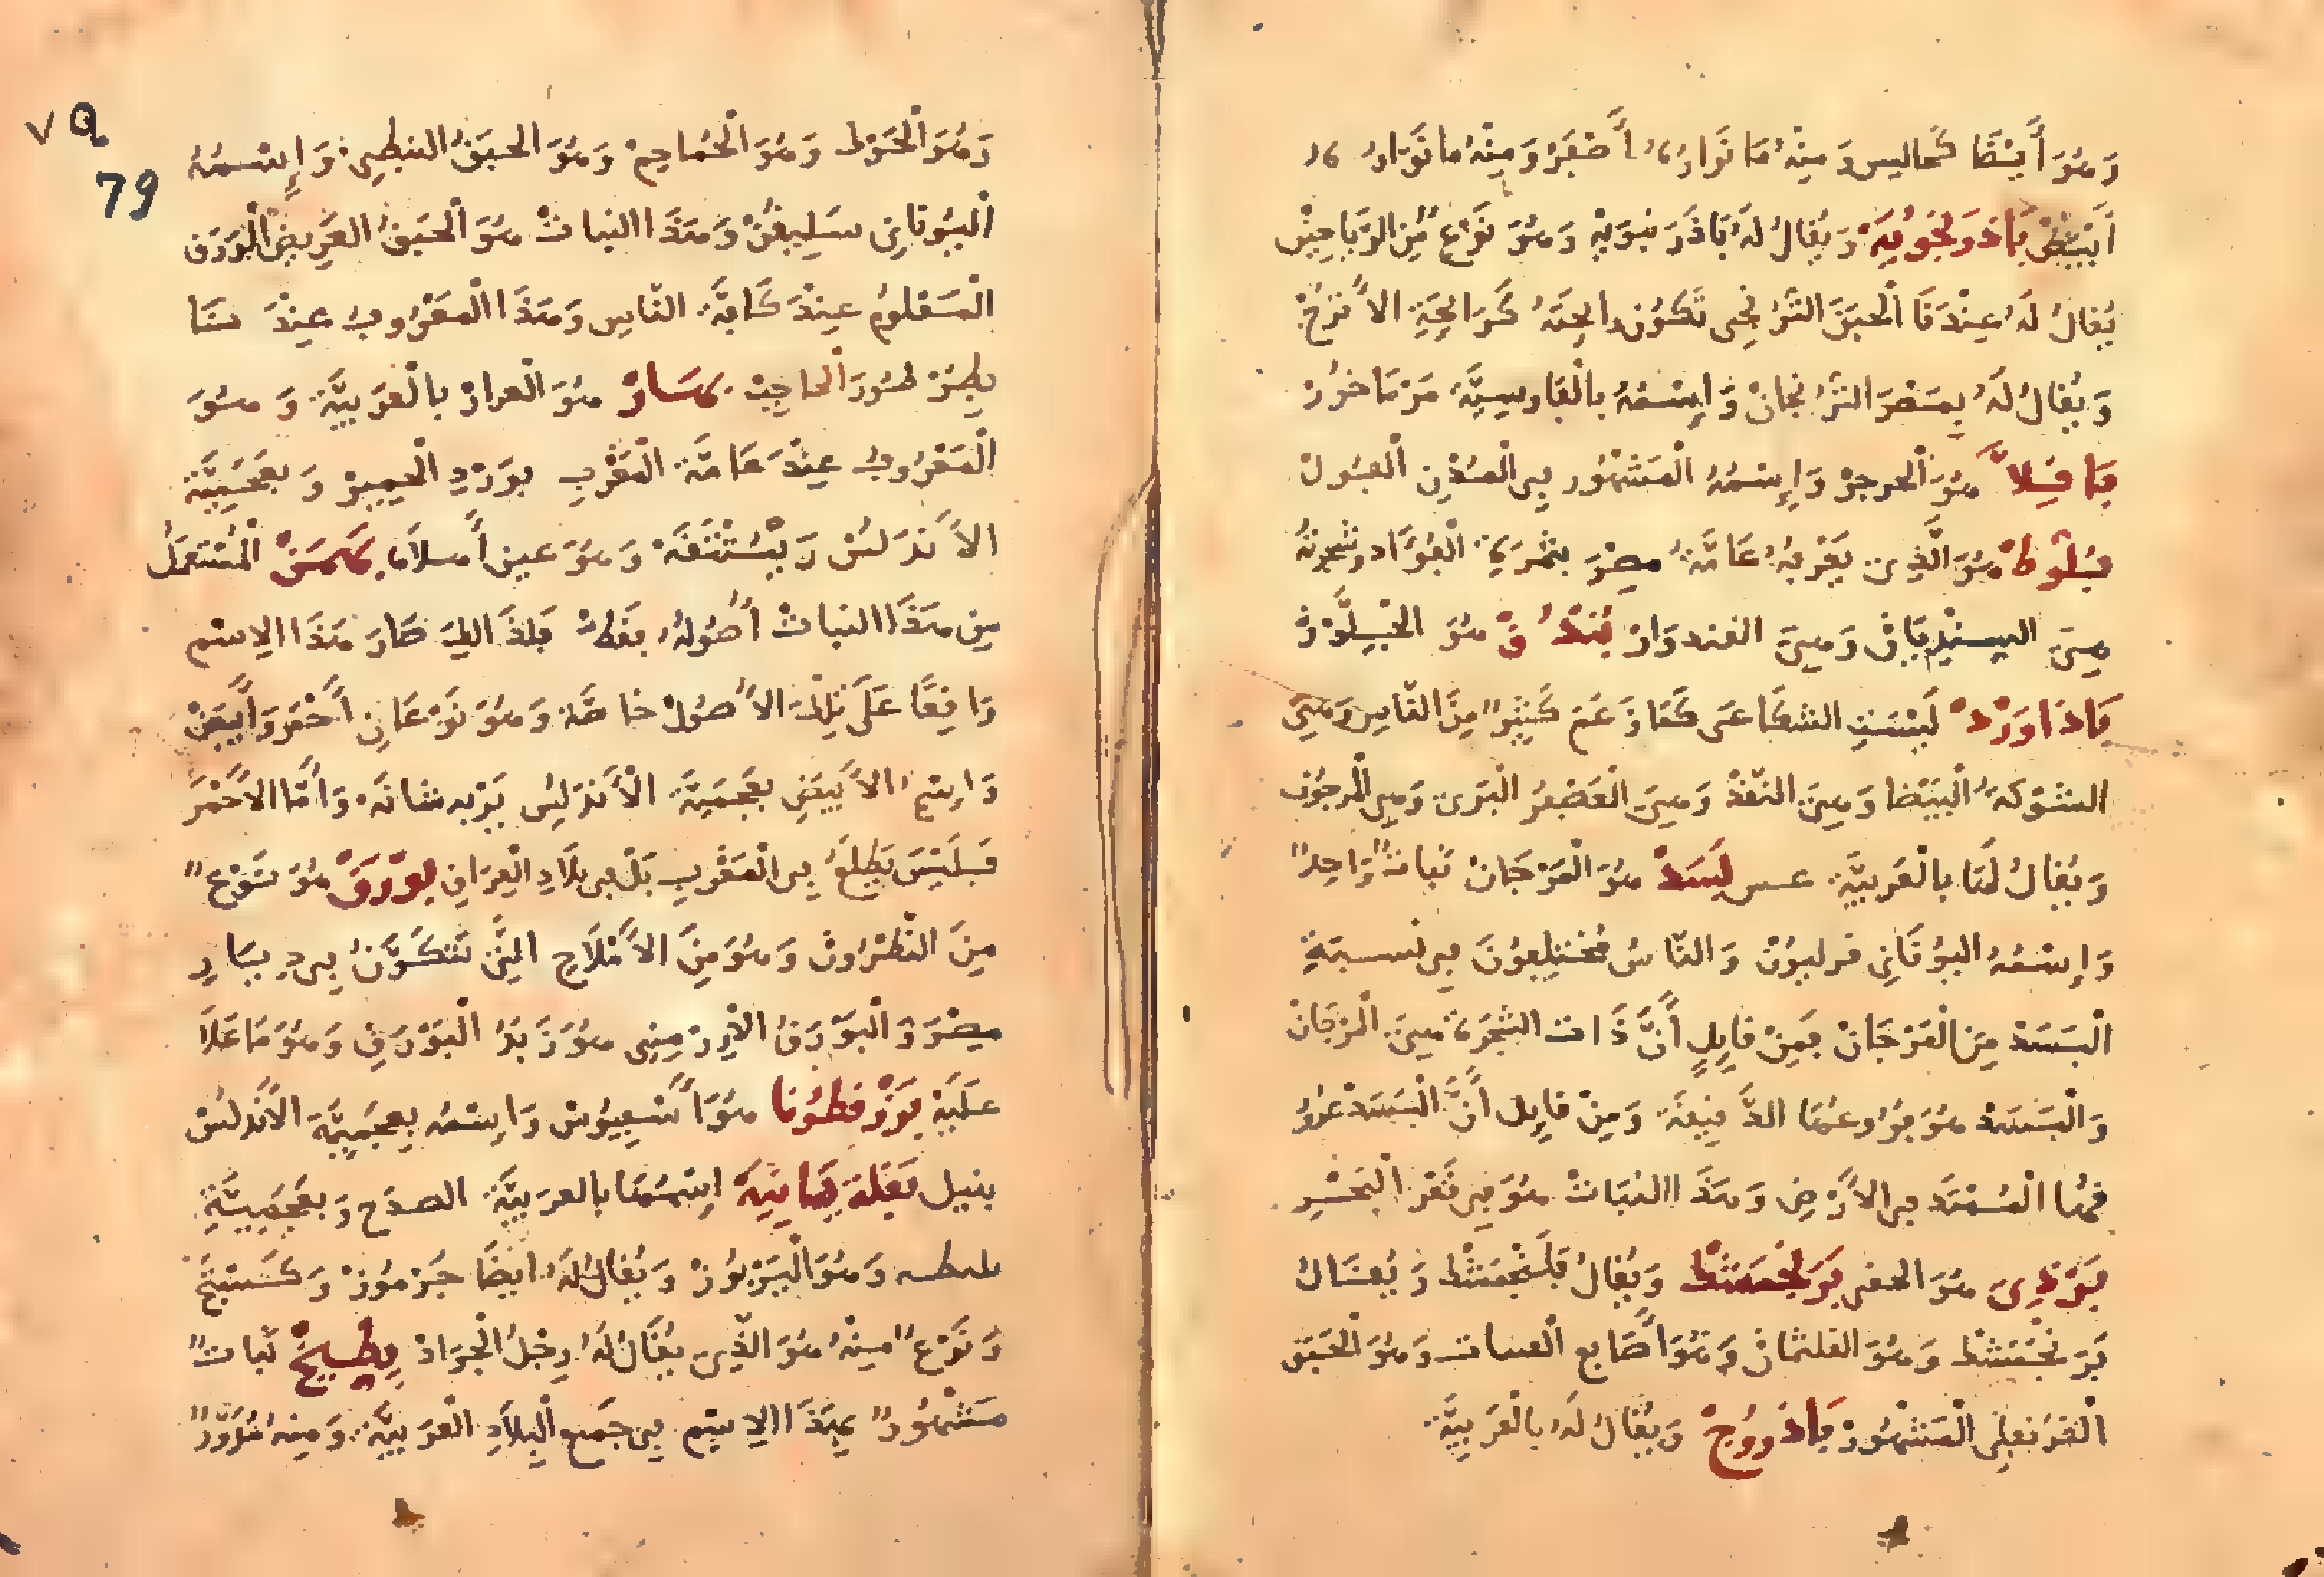 وَهُوَ أَيْضًا كَمَاليس وَمِنْهُ مَا نَوَّارُهُ أَصْفَرْ وَمِنْهُ ما نَوَّارُهُ
أَبْيَضْ بَاذَرَنْجُويَه وَيُقالُ لَهُ بَاذَرَنْبَوَيْه وَهُوَ نَوْعٌ مِّنَ الرَّيَاحِيْن
يُقالُ لَهُ عِنْدَنَا الْحبَقَ التُّرُنْجِي تَكُونُ رايحَتُهُ كَرَايِحَةِ الأُتْرُجّ
وَيُقالُ لَهُ بِمِصْرَ التُّرُنْجَانْ وَإِسْمُهُ بِالْفَارِسِيَّة مَرْمَاخوُرْ
بَاقِلاَّ هُوَ الْجرجرْ وَإِسْمُهُ الْمَشْهُور فِي الْمُدْنِ الْفُولْ
بَلُّوطْ هُوَ الَّذِي يَعْرِفُهُ عَامَّةُ مِصْرَ بِثَمْرَةِ الْفُؤَاد وشجرتُهُ
هِيَ السِنْدِيَانْ وَهِيَ
بُنْدُقْ هُوَ الْجِلَّوْزْ
بَاذَاوَرْدْ لَيْسَتِ الشكَاعَى كَمَا زَعَمَ كَثِيرٌ مِنَ النَّاسِ وَهِيَ
الشَوْكَةُ الْبَيْضا وَهِيَ وَهِيَ الْعُصْفُرُ الْبَرِي وَهِيَ
وَيُقالُ لَهَا بِالْعَرَبيَّةِ بُسَّدْ هُوَ الْمَرْجَانْ نَباتٌ وَاحِدٌ
وَإِسْمُهُ اليُونَانِي وَالنَّاسُ مُخْتَلِفُونَ فِي نسبَةِ
الْبُسَدْ مِنَ الْمَرْجَانْ فَمِنْ قايِلٍ أَنَّ ذَات الشَّجَرَة هِيَ الْمَرْجَانْ
وَالْبُسَدْ هُوَ فُرُوعُهَا الدَّقِيقَة وَمِنْ قايِل أَنَّ الْبُسَدْ عرُوُ
قهُا الْمُمْتَدَ فِي الأَرْضِ وَهَذَا النَبَاتْ هُوَ فِي قَعْر الْبَحْرِ
بَرْدِي هُوَ الحفى بَرَنْجَمَشْطْ وَيُقالُ فَلَنْجَمَشْطْ وَيُقَالُ
بَرَنْجَمَشْطْ وَهُوَ وَهُوَ أَصَابِع الْفتيات وَهُوَ الْحَبَق
الْقَرُنْفُلِي الْمَشْهُورْ بَاذَرُوجْ وَيُقَالُ لَهُ بِالْعَرَبِيَّة
٧٩
79
وَهُوَ الْحَوْك وَهُوَ الْحُماحِمْ وَهُوَ الحبَقُ النبطِي وَإِسْمُهُ
الْيُونانِي وَهَذَا النبَاتْ هُوَ الْحَبَقُ العَرِيضُ الْوَرَق
الْمَعْلُومُ عِنْدَ كَافَّة النَّاسِ وَهَذَا الْمَعْرُوفُ عِنْدَ نَا
بِظِفْرِ بَهَارْ هُوَ الْعرارْ بِالْعَرَبِيَّة وَهُوَ
الْمَعْرُوفُ عِنْدَ عَامَّة الْمَغْرِبِ بِوَرْدِ الْحِمِيرْ وَبِعَجَمِيَّة
الأَنْدَلُسْ وَهُوَ عين أَملا بَهْمَنْ الْمُسْتَعْمَلُ
مِن هَذَا النبَاتْ أُصُولُهُ فَقَطْ فَلِذَالِكَ صَارَ هَذَا الاِسْم
وَاقِعًا عَلَى تِلْكَ الأُصُولْ خاصَّة وَهُوَ نَوْعَانِ أَحْمَر وَأَبْيَضْ
وَاسْمُ الأَبْيَضِ بِعَجَمِيَّة الأَنْدَلُسِ وَأَمَّا الأَحْمَرَ
فَلَيْسَ يَطْلُعُ فِي الْمَغْرِبِ بَلْ فِي بِلاَدِ الْعِرَاقِ بَوْرَقْ هُوَ نَوْعٌ
مِنَ النَّطْرُونْ وَهُوَ مِنَ الأَمْلاَحِ الَّتِي تَتَكَوَّنُ فِي دِيَارِ
مِصْرَ وَالْبَوْرَقُ الأَرْمِنِي هُوَ زَبَدُ الْبَوْرَقِ وَهُوَ مَا عَلاَ
عَلَيْه بَزْرْ قطُونا هُوَ أَسْفِيُوس وَاسْمُهُ بِعَجَمِيَّة الأَنْدَلُسْ
بَقْلَة يَمَانِيَة اِسْمُهَا بِالعرَبِيَّة وَبِعَجَمِيَّةِ
وَهُوَ الْيَرْبُوزْ وَيُقالُ لَهُ أَيْضًا جَرْمُوزْ وَ
وَنَوْعٌ مِنْهُ هُوَ الَّذِي يُقَالُ لَهُ رِجْلُ الْجَرَادْ بِطِّيخْ نَباتٌ
مَشْهُورٌ بِهَذَا الاِسْم فِي جَمِيع الْبِلاَدِ الْعَرَبِيَّة وَمِنهُ مُدَوَّرٌ